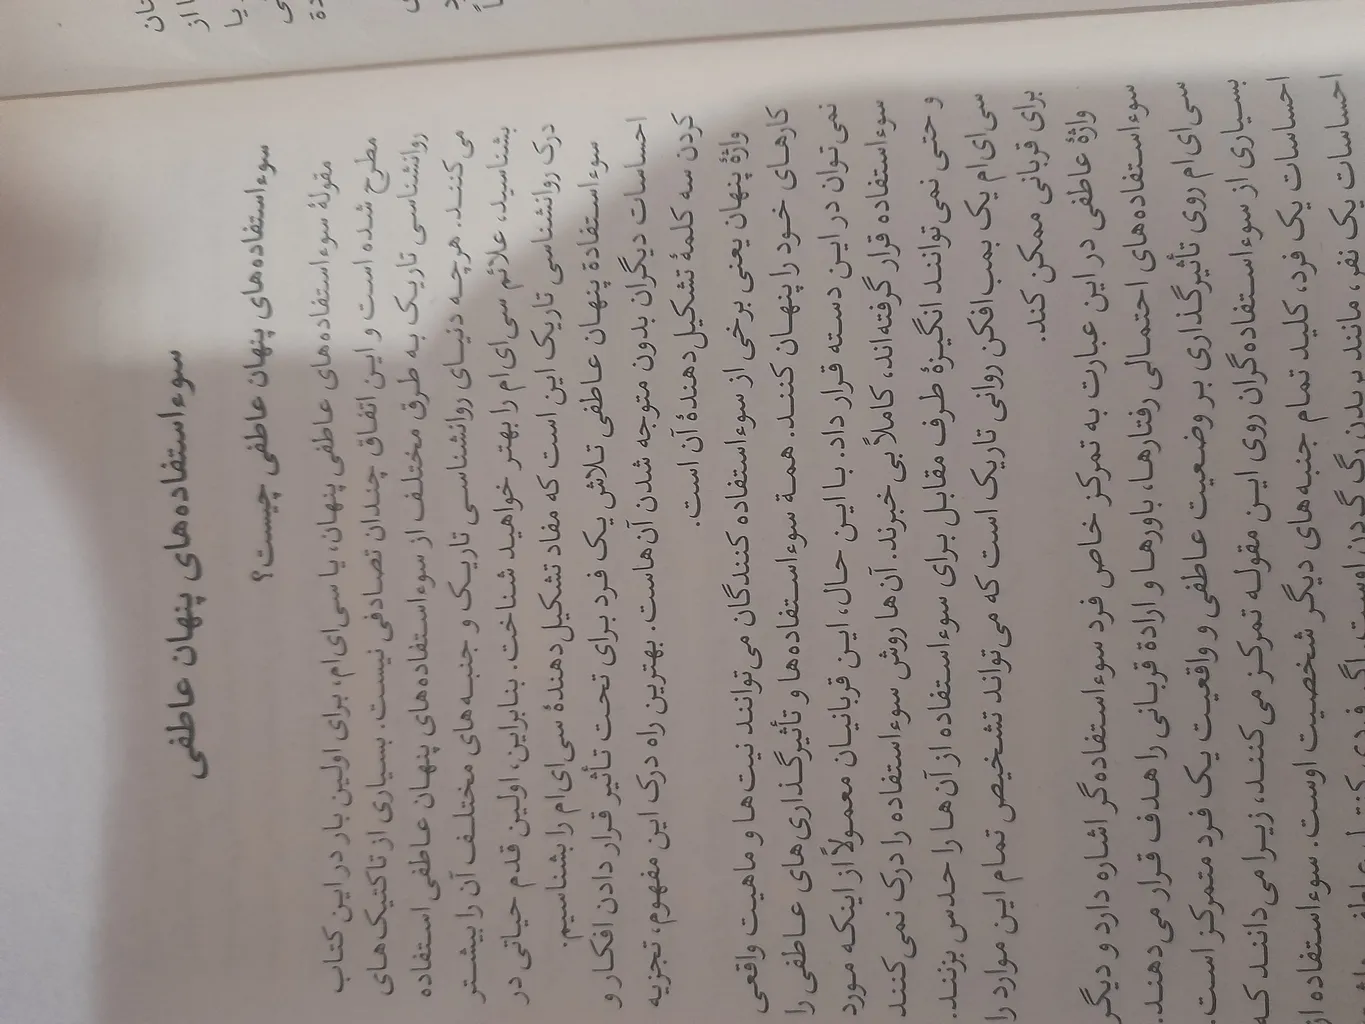 سوءاستفاده‌های پنهان عاطفی
سوءاستفاده‌های پنهان عاطفی چیست؟
مقولهٔ سوءاستفاده‌های عاطفی پنهان، یا سی‌ای‌ام، برای اولین بار در این کتاب
مطرح شده است و این اتفاق چندان تصادفی نیست. بسیاری از تاکتیک‌های
روانشناسی تاریک به طرق مختلف از سوءاستفاده‌های پنهان عاطفی استفاده
می‌کنند. هرچه دنیای روانشناسی تاریک و جنبه‌های مختلف آن را بیشتر
بشناسید، علائم سی‌ای‌ام را بهتر خواهید شناخت. بنابراین، اولین قدم حیاتی در
درک روانشناسی تاریک این است که مفاد تشکیل‌دهندهٔ سی‌ای‌ام را بشناسیم.
سوءاستفادهٔ پنهان عاطفی تلاش یک فرد برای تحت تأثیر قرار دادن افکار و
احساسات دیگران بدون متوجه شدن آن‌هاست. بهترین راه درک این مفهوم، تجزیه
کردن سه کلمهٔ تشکیل‌دهندهٔ آن است.
واژهٔ پنهان یعنی برخی از سوءاستفاده‌کنندگان می‌توانند نیت‌ها و ماهیت واقعی
کارهای خود را پنهان کنند. همهٔ سوءاستفاده‌ها و تأثیرگذاری‌های عاطفی را
نمی‌توان در این دسته قرار داد. با این حال، این قربانیان معمولاً از اینکه مورد
سوءاستفاده قرار گرفته‌اند، کاملاً بی‌خبرند. آن‌ها روش سوءاستفاده را درک نمی‌کنند
و حتی نمی‌توانند انگیزهٔ طرف مقابل برای سوءاستفاده از آن‌ها را حدس بزنند.
سی‌ای‌ام یک بمب‌افکن روانی تاریک است که می‌تواند تشخیص تمام این موارد را
برای قربانی ممکن کند.
واژهٔ عاطفی در این عبارت به تمرکز خاص فرد سوءاستفاده‌گر اشاره دارد و دیگر
سوءاستفاده‌های احتمالی رفتارها، باورها و ارادهٔ قربانی را هدف قرار می‌دهند.
سی‌ای‌ام روی تأثیرگذاری بر وضعیت عاطفی و واقعیت یک فرد متمرکز است.
بسیاری از سوءاستفاده‌گران روی این مقوله تمرکز می‌کنند، زیرا می‌دانند که
احساسات یک فرد، کلید تمام جنبه‌های دیگر شخصیت اوست. سوءاستفاده از
احساسات یک نفر، مانند بریدن رگ گردن اوست. اگر فردی